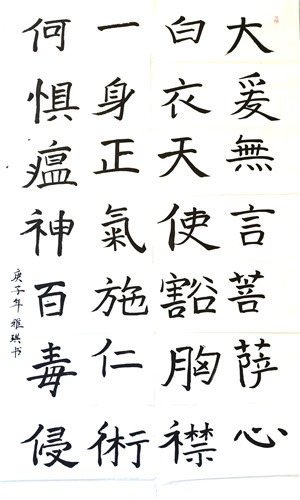 大爰無言菩薩心
白衣天使豁胸襟
一身正氣施仁術
何懼瘟神百毒侵
庚子年雅琪书